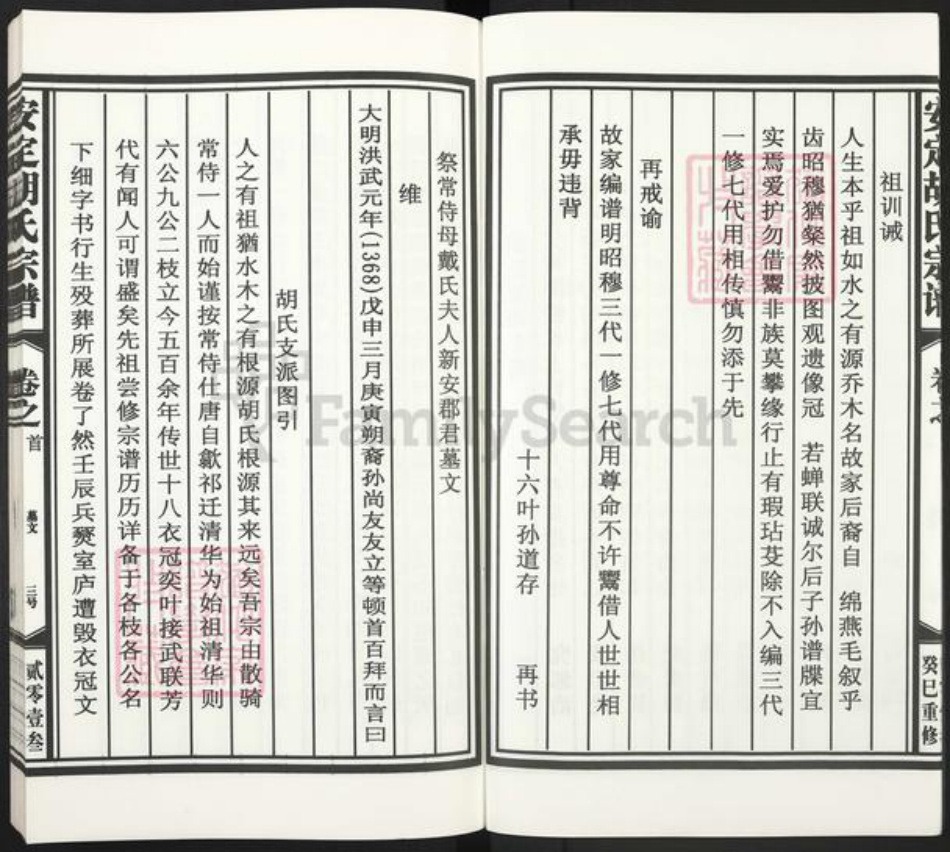 安定胡氏宗谱
癸巳重修
祖训诫
人生本乎祖如水之有源乔木名故家后裔自 绵燕毛叙乎
齿昭穆猶粲然披图观遗像冠 若蝉联诚尔后子孙谱牒宜
实焉爱护勿借鬻非族莫攀缘行止有瑕玷芟除不入编三代
一修七代用相传慎勿添于先
再戒谕
故家编谱明昭穆三代一修七代用尊命不许鬻借人世世相
承毋违背
十六叶孙道存 再书
祭常侍母戴氏夫人新安郡君墓文
维
大明洪武元年(1368)戊申三月庚寅朔裔孙尚友友立等顿首百拜而言曰
胡氏支派图引
人之有祖猶水木之有根源胡氏根源其来远矣吾宗由散骑
常侍一人而始谨按常侍仕唐自歙祁迁清华为始祖清华则
六公九公二枝立今五百余年传世十八衣冠奕叶接武联芳
代有闻人可谓盛矣先祖尝修宗谱历历详备于各枝各公名
下细字书行生殁葬所展卷了然壬辰兵燹室庐遭毁衣冠文
安定胡氏宗谱
卷之首
墓文
三号
贰零壹叁
FamilySearch